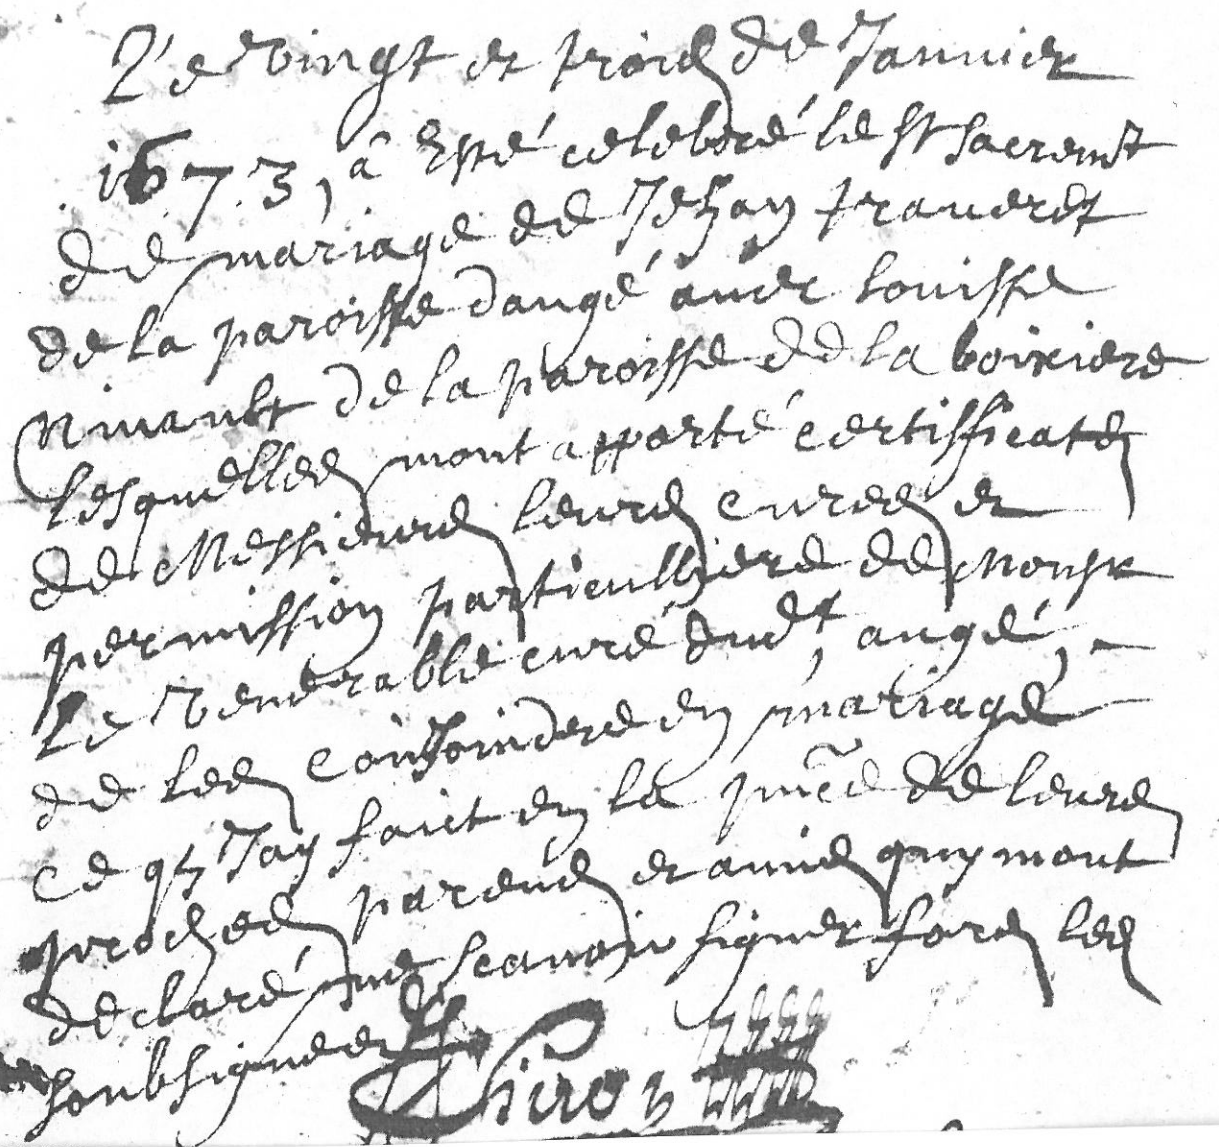 Le vingt et trois de Januier
1673, a Esté celebré le St sacremt
de mariage de Jehan traueret
de la paroisse dangé auec Louisse
de la paroisse de la boixiere
lesquelles mont apporté certifficates
de Messieurs leurs curees et
permission particulliere de Monsr
Le Venerable curé dudt, angé, -
de les conJoindre en mariage
ce q Jay faict en la pnce de leurs
proches parens et amis quy mont
declaré ne scauoir signer fors les
soubsignees